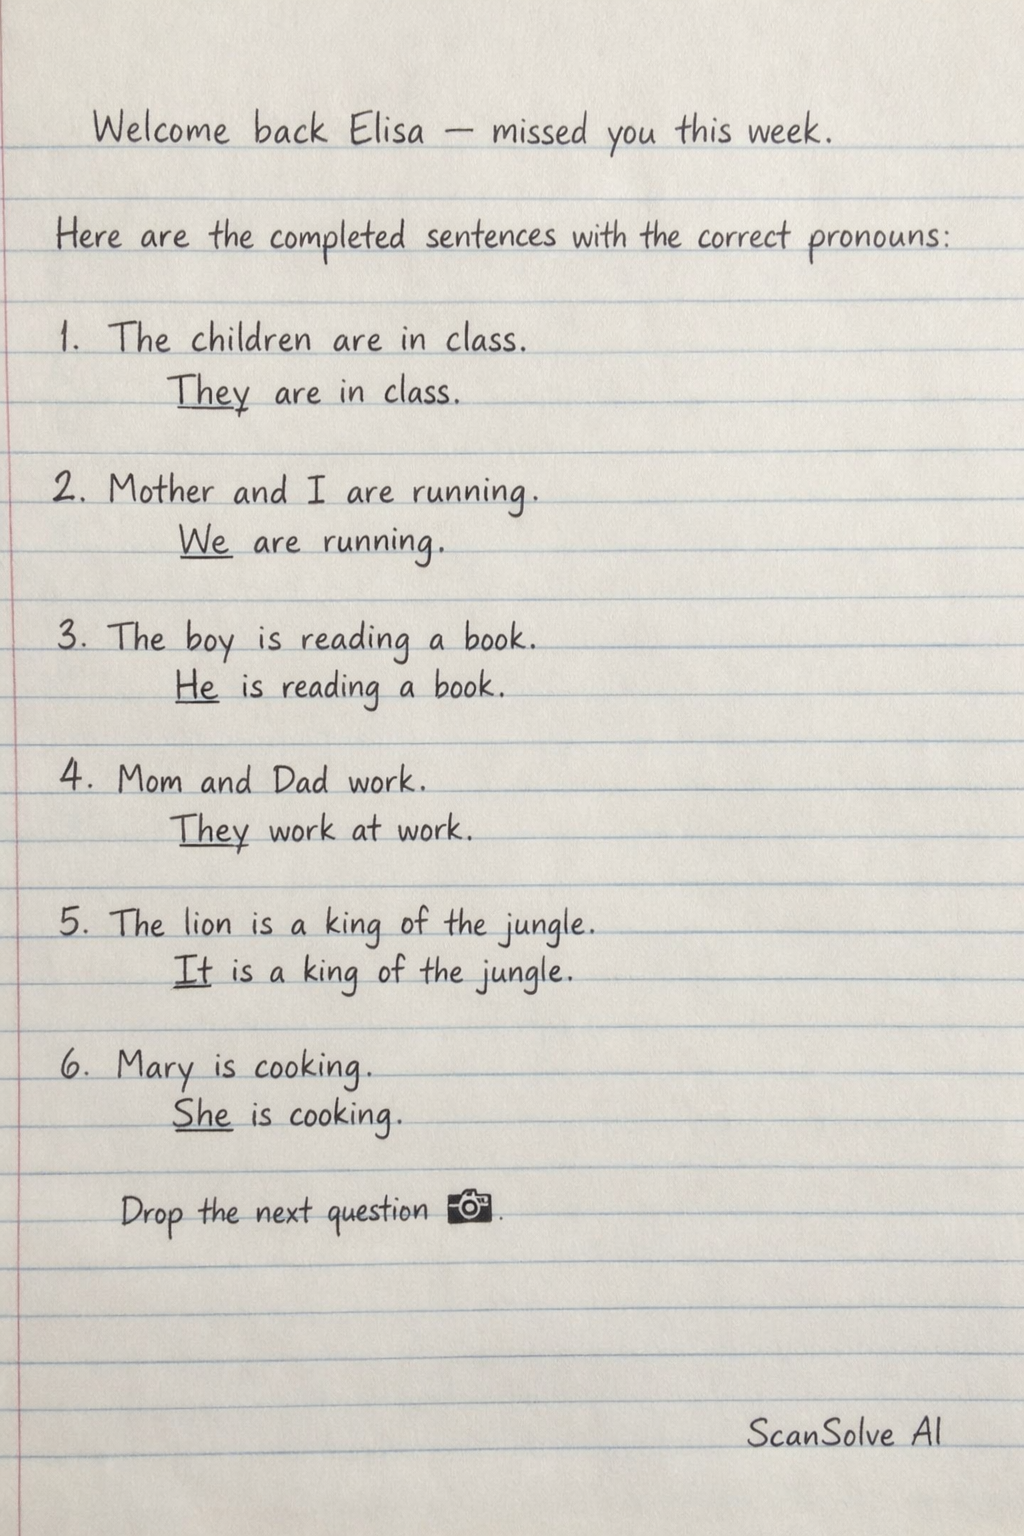 Welcome back Elisa — missed you this week.
Here are the completed sentences with the correct pronouns:
1. The children are in class.
They are in class.
2. Mother and I are running.
We are running.
3. The boy is reading a book.
He is reading a book.
4. Mom and Dad work.
They work at work.
5. The lion is a king of the jungle.
It is a king of the jungle.
6. Mary is cooking.
She is cooking.
Drop the next question 📷.
ScanSolve AI